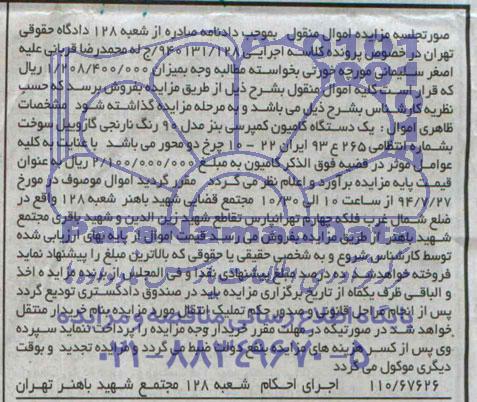 صورتجلسه مزایده اموال منقول بموجب دادنامه صادره از شعبه ۱۲۸ دادگاه حقوقی
تهران در خصوص پرونده کلاسه اجرایی ۹۴۰۱۳۱/۱۲۸ج له محمدرضا قربانی علیه
اصغر سلیمانی مورچه خورتی بخواسته مطالبه وجه بمیزان ۱/۲۰۸/۴۰۰/۰۰۰ ریال
که قرار است کلیه اموال منقول بشرح ذیل از طریق مزایده بفروش برسد که حسب
نظریه کارشناس بشرح ذیل می باشد و به مرحله مزایده گذاشته شود مشخصات
ظاهری اموال : یک دستگاه کامیون کمپرسی بنز مدل ۹۰ رنگ نارنجی گازوییل سوخت
بشماره انتظامی ۲۶۵ ع ۹۲ ایران ۲۲ - ۱۰ چرخ دو محور می باشد با عنایت به کلیه
عوامل موثر در قضیه فوق الذکر کامیون به مبلغ ۲/۱۰۰/۰۰۰/۰۰۰ ریال به عنوان
قیمت پایه مزایده برآورد و اعلام نظر می گردد. مقرر گردید اموال موصوف در مورخ
۹۴/۷/۲۷ از ساعت ۱۰ الی ۱۰/۳۰ مجتمع قضایی شهید باهنر شعبه ۱۲۸ واقع در
ضلع شمال غرب فلکه چهارم تهرانپارس تقاطع شهید زین الدین و شهید باقری مجتمع
شهید باهنر از طریق مزایده بفروش می رسد قیمت اموال از پایه بهای ارزیابی شده
توسط کارشناس شروع و به شخصی حقیقی یا حقوقی که بالاترین مبلغ را پیشنهاد نماید
فروخته خواهد شد ده درصد مبلغ پیشنهادی نقدا و فی المجلس از برنده مزایده اخذ
و الباقی ظرف یکماه از تاریخ برگزاری مزایده باید در صندوق دادگستری تودیع گردد
پس از انجام مراحل قانونی و صدور حکم تملیک انتقال مورد مزایده بنام خریدار منتقل
خواهد شد در صورتیکه در مهلت مقرر خریدار وجه مزایده را پرداخت ننماید سپرده
وی پس از کسر هزینه های مزایده بنفع دولت ضبط می گردد و مزایده تجدید و بوقت
دیگری موکول می گردد
۱۱۰/۶۷۶۲۶ اجرای احکام شعبه ۱۲۸ مجتمع شهید باهنر تهران
ParsNamadData
۰۲۱-۸۸۳۴۹۶۷۰-۵